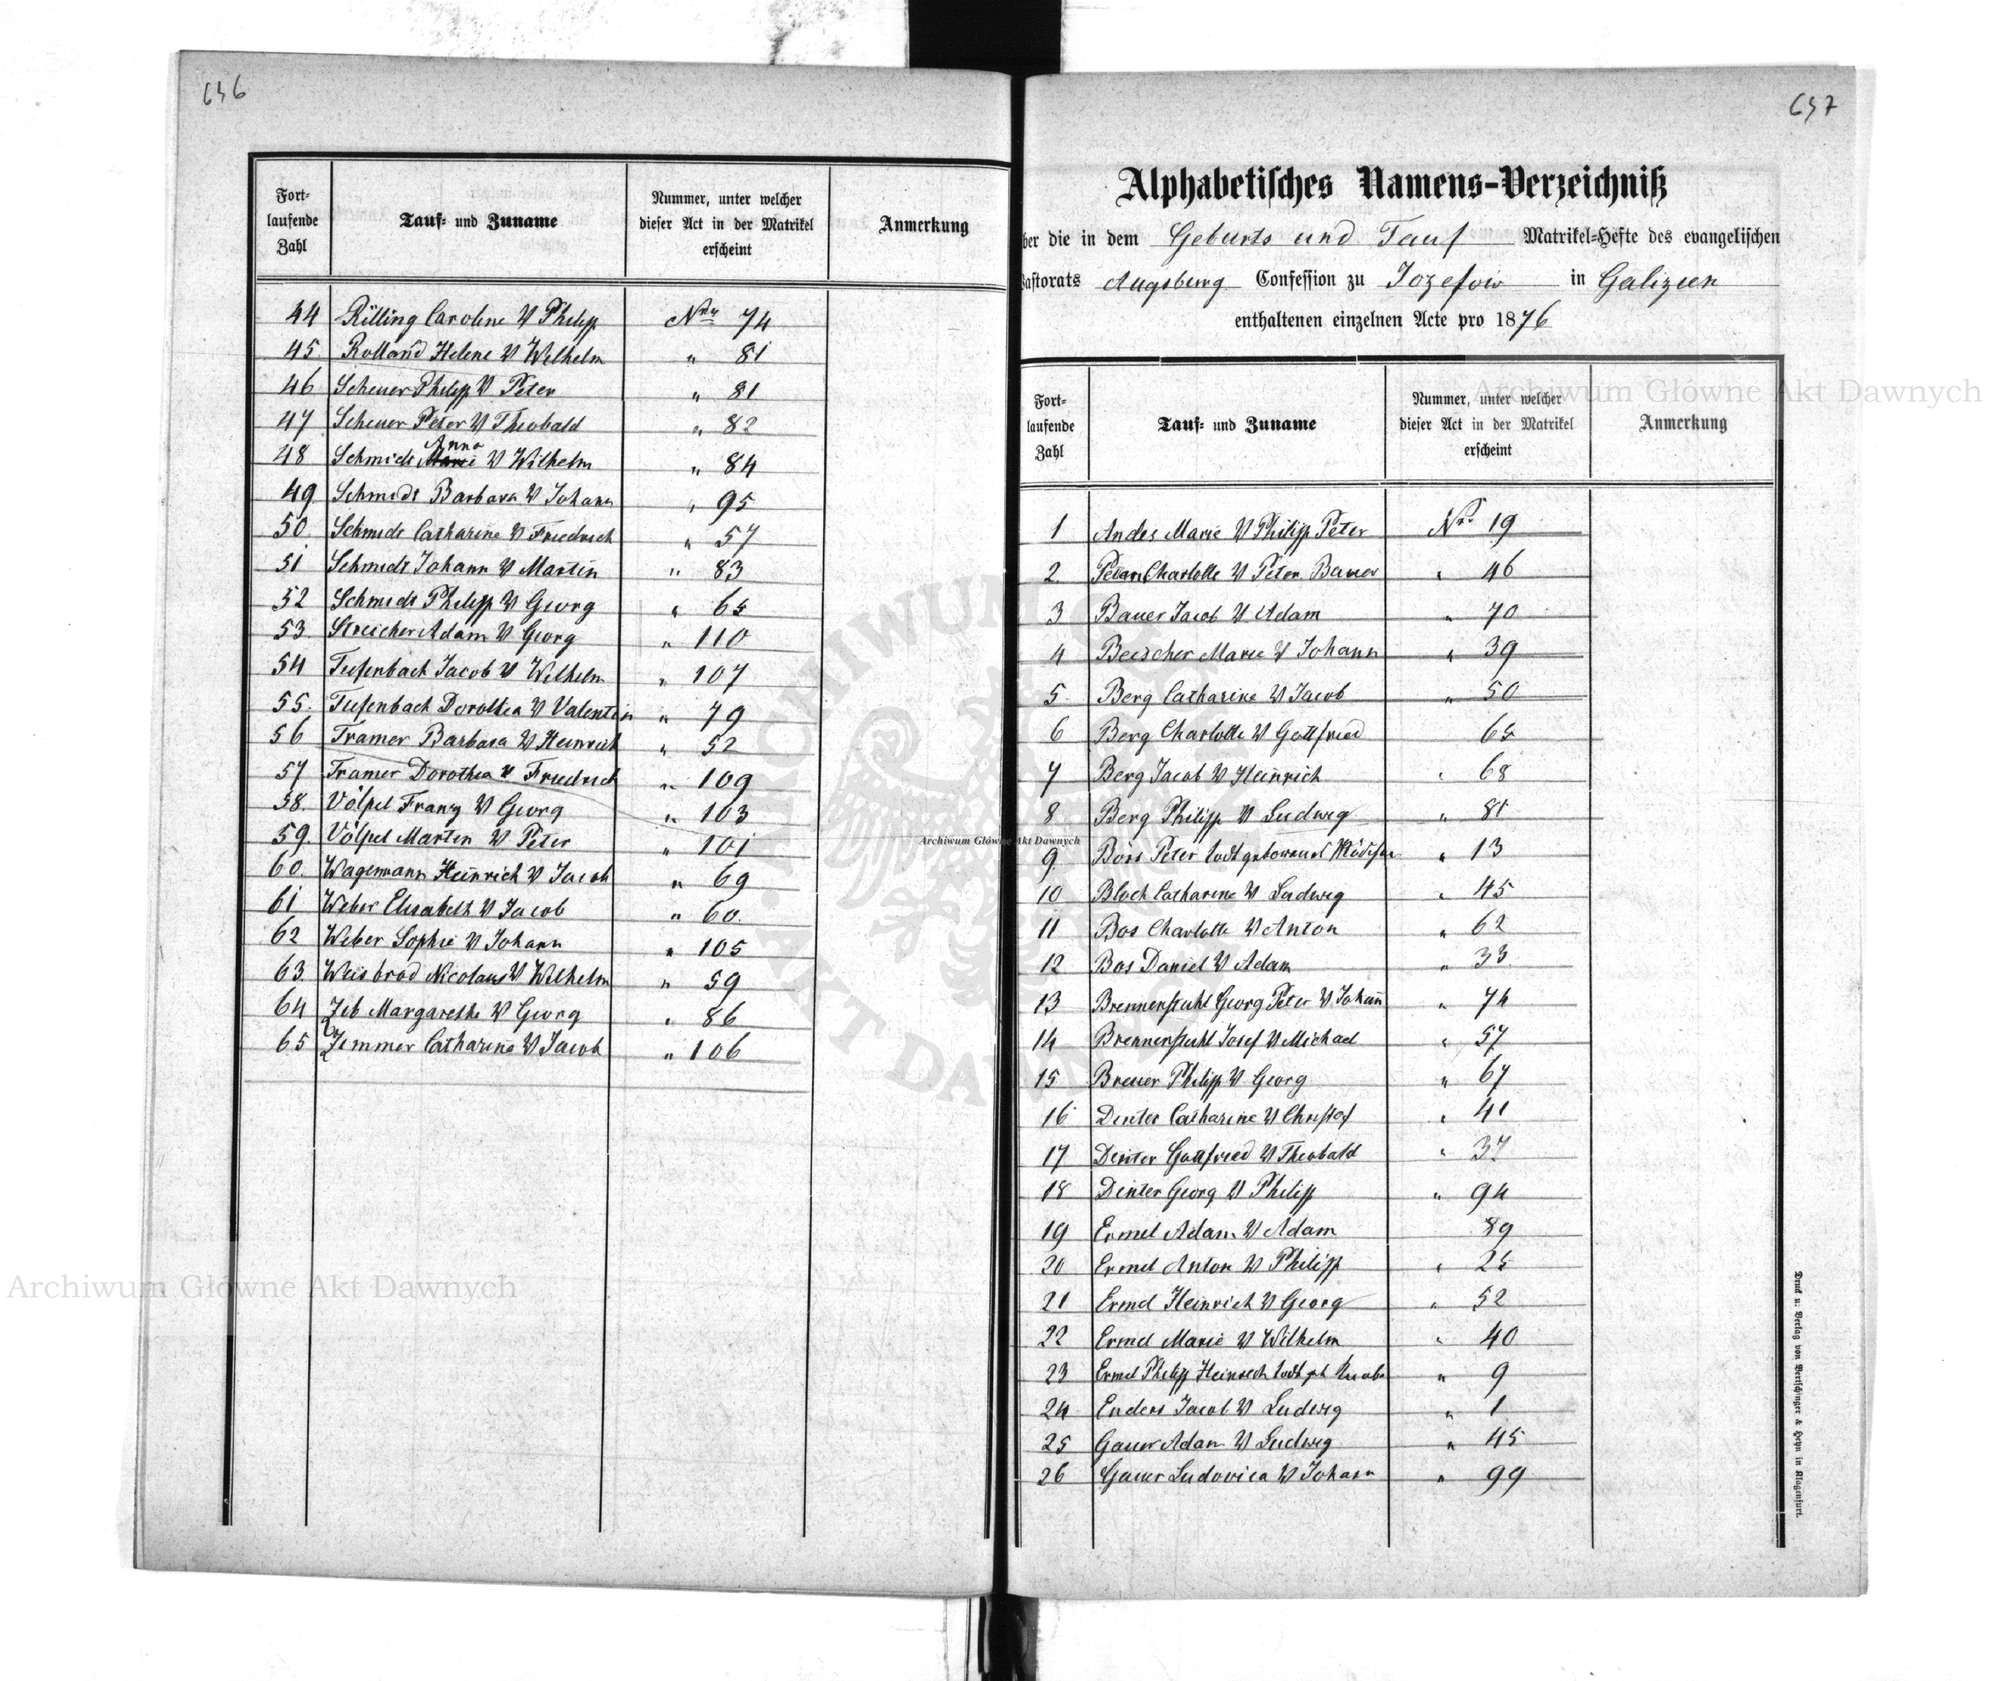 636
Fort-
laufende
Zahl
Tauf- und Zuname
Nummer, unter welcher
dieser Act in der Matrikel
erscheint
Anmerkung
44 Rilling Caroline V Philipp Nro 74
45 Rolland Helene V Wilhelm " 81
46 Scheuer Philipp V Peter " 81
47 Scheuer Peter V Theobald " 82
Anna
48 Schmidt Marie V Wilhelm " 84
49 Schmidt Barbara V Johann " 95
50. Schmidt Catharine V Friedrich " 57
51 Schmidt Johann V Martin " 83
52 Schmidt Philipp V Georg " 65
53. Streicher Adam V Georg " 110
54 Tiefenbach Jacob V Wilhelm " 107
55. Tiefenbach Dorothea V Valentin " 79
56 Tramer Barbara V Heinrich " 52
57 Tramer Dorothea V Friedrich " 109
58. Völpel Franz V Georg " 103
59. Völpel Martin V Peter " 101
60. Wagemann Heinrich V Jacob " 69
61 Weber Elisabeth V Jacob " 60.
62 Weber Sophie V Johann " 105
63. Weisbrod Nicolaus V Wilhelm " 59
64 Zeb Margarethe V Georg " 86
65 Zimmer Catharine V Jacob " 106
637
Alphabetisches Namens-Verzeichniß
ber die in dem Geburts und Tauf Matrikel-Hefte des evangelischen
astorats Augsburg Confession zu Jozefow in Galizien
enthaltenen einzelnen Acte pro 1876
Fort-
laufende
Zahl
Tauf- und Zuname
Nummer, unter welcher
dieser Act in der Matrikel
erscheint
Anmerkung
1 Andes Marie V Philipp Peter Nro 19
2 Charlotte V Peter Bauer " 46
3 Bauer Jacob V Adam " 70
4 Beischer Marie V Johann " 39
5. Berg Catharine V Jacob " 50
6 Berg Charlotte V Gottfried 65
7 Berg Jacob V Heinrich " 68
8 Berg Philipp V Ludwig " 81
9. Börs Peter todtgeborenes Mädchen " 13
10 Bloch Catharine V Ludwig " 45
11 Bos Charlotte V Anton " 62
12 Bos Daniel V Adam " 33
13 Brennenstuhl Georg Peter V Johann " 74
14 Brennenstuhl Josef V Michael " 57
15 Breuer Philipp V Georg " 67
16 Dinter Catharine V Christof " 41
17 Dinter Gottfried V Theobald " 37
18 Dinter Georg V Philipp " 94
19 Ermel Adam V Adam 89
20 Ermel Anton V Philipp " 25
21 Ermel Heinrich V Georg " 52
22 Ermel Marie V Wilhelm " 40
23 Ermel Philipp Heinrich todt geb Knabe " 9
24 Enders Jacob V Ludwig " 1
25 Gauer Adam V Ludwig " 45
26 Gauer Ludovica V Johann " 99
Druck u. Verlag von Bertschinger & Heyn in Klagenfurt.
Archiwum Główne Akt Dawnych
Archiwum Główne Akt Dawnych
Archiwum Główne Akt Dawnych